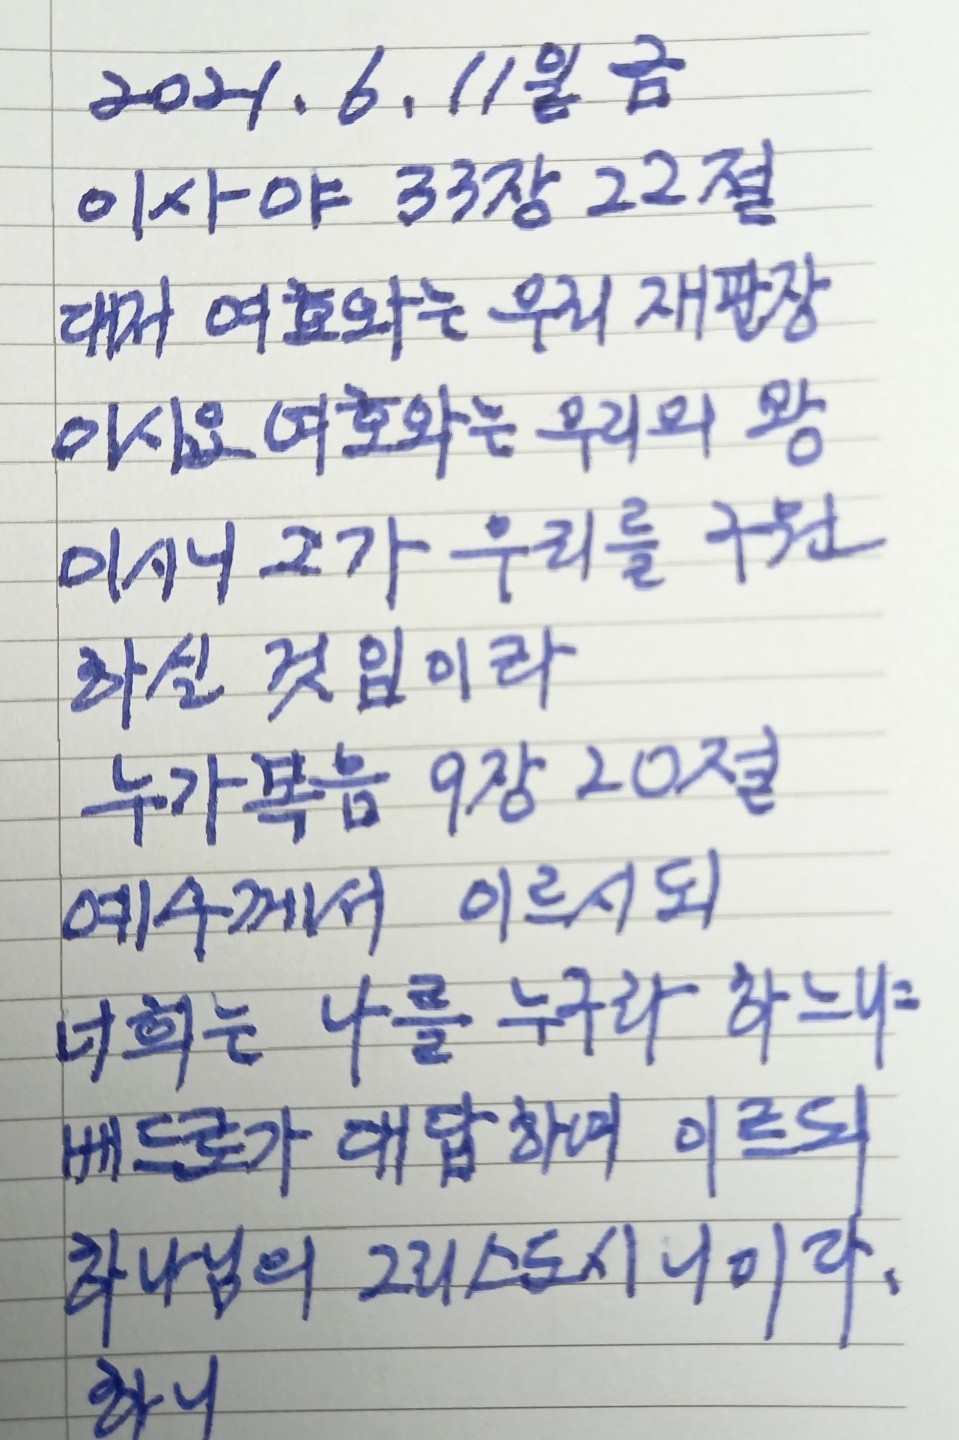 2021. 6. 11일 금
이사야 33장 22절
대저 여호와는 우리 재판장
이시요 여호와는 우리의 왕
이시니 그가 우리를 구원
하실 것임이라
누가복음 9장 20절
예수께서 이르시되
너희는 나를 누구라 하느냐=
베드로가 대답하여 이르되
하나님의 그리스도시니이다.
하니